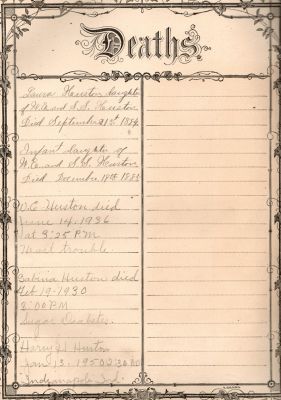 Deaths.
Laura Huston daughter
of W.C. and S.S. Huston
Died September 21st 1884
Infant daughter of
W.C. and S.S. Huston
Died December 18th
W.C. Huston died
June 14, 1936
at 3:25 P.M
Heart trouble
Sabina Huston died
Feb 19-1930
8:00 P.M
Sugar Diabetes.
Harry H Huston
Jan 13. 1950 2:30
Indianapolis Ind.